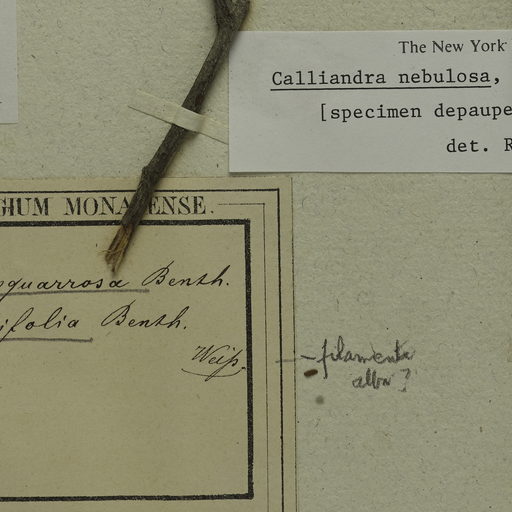 The New York
Calliandra nebulosa,
[specimen depaupe
det. R
GIUM MONACENSE.
squarrosa Benth.
ifolia Benth.
Weiß.
filamenta
alba?